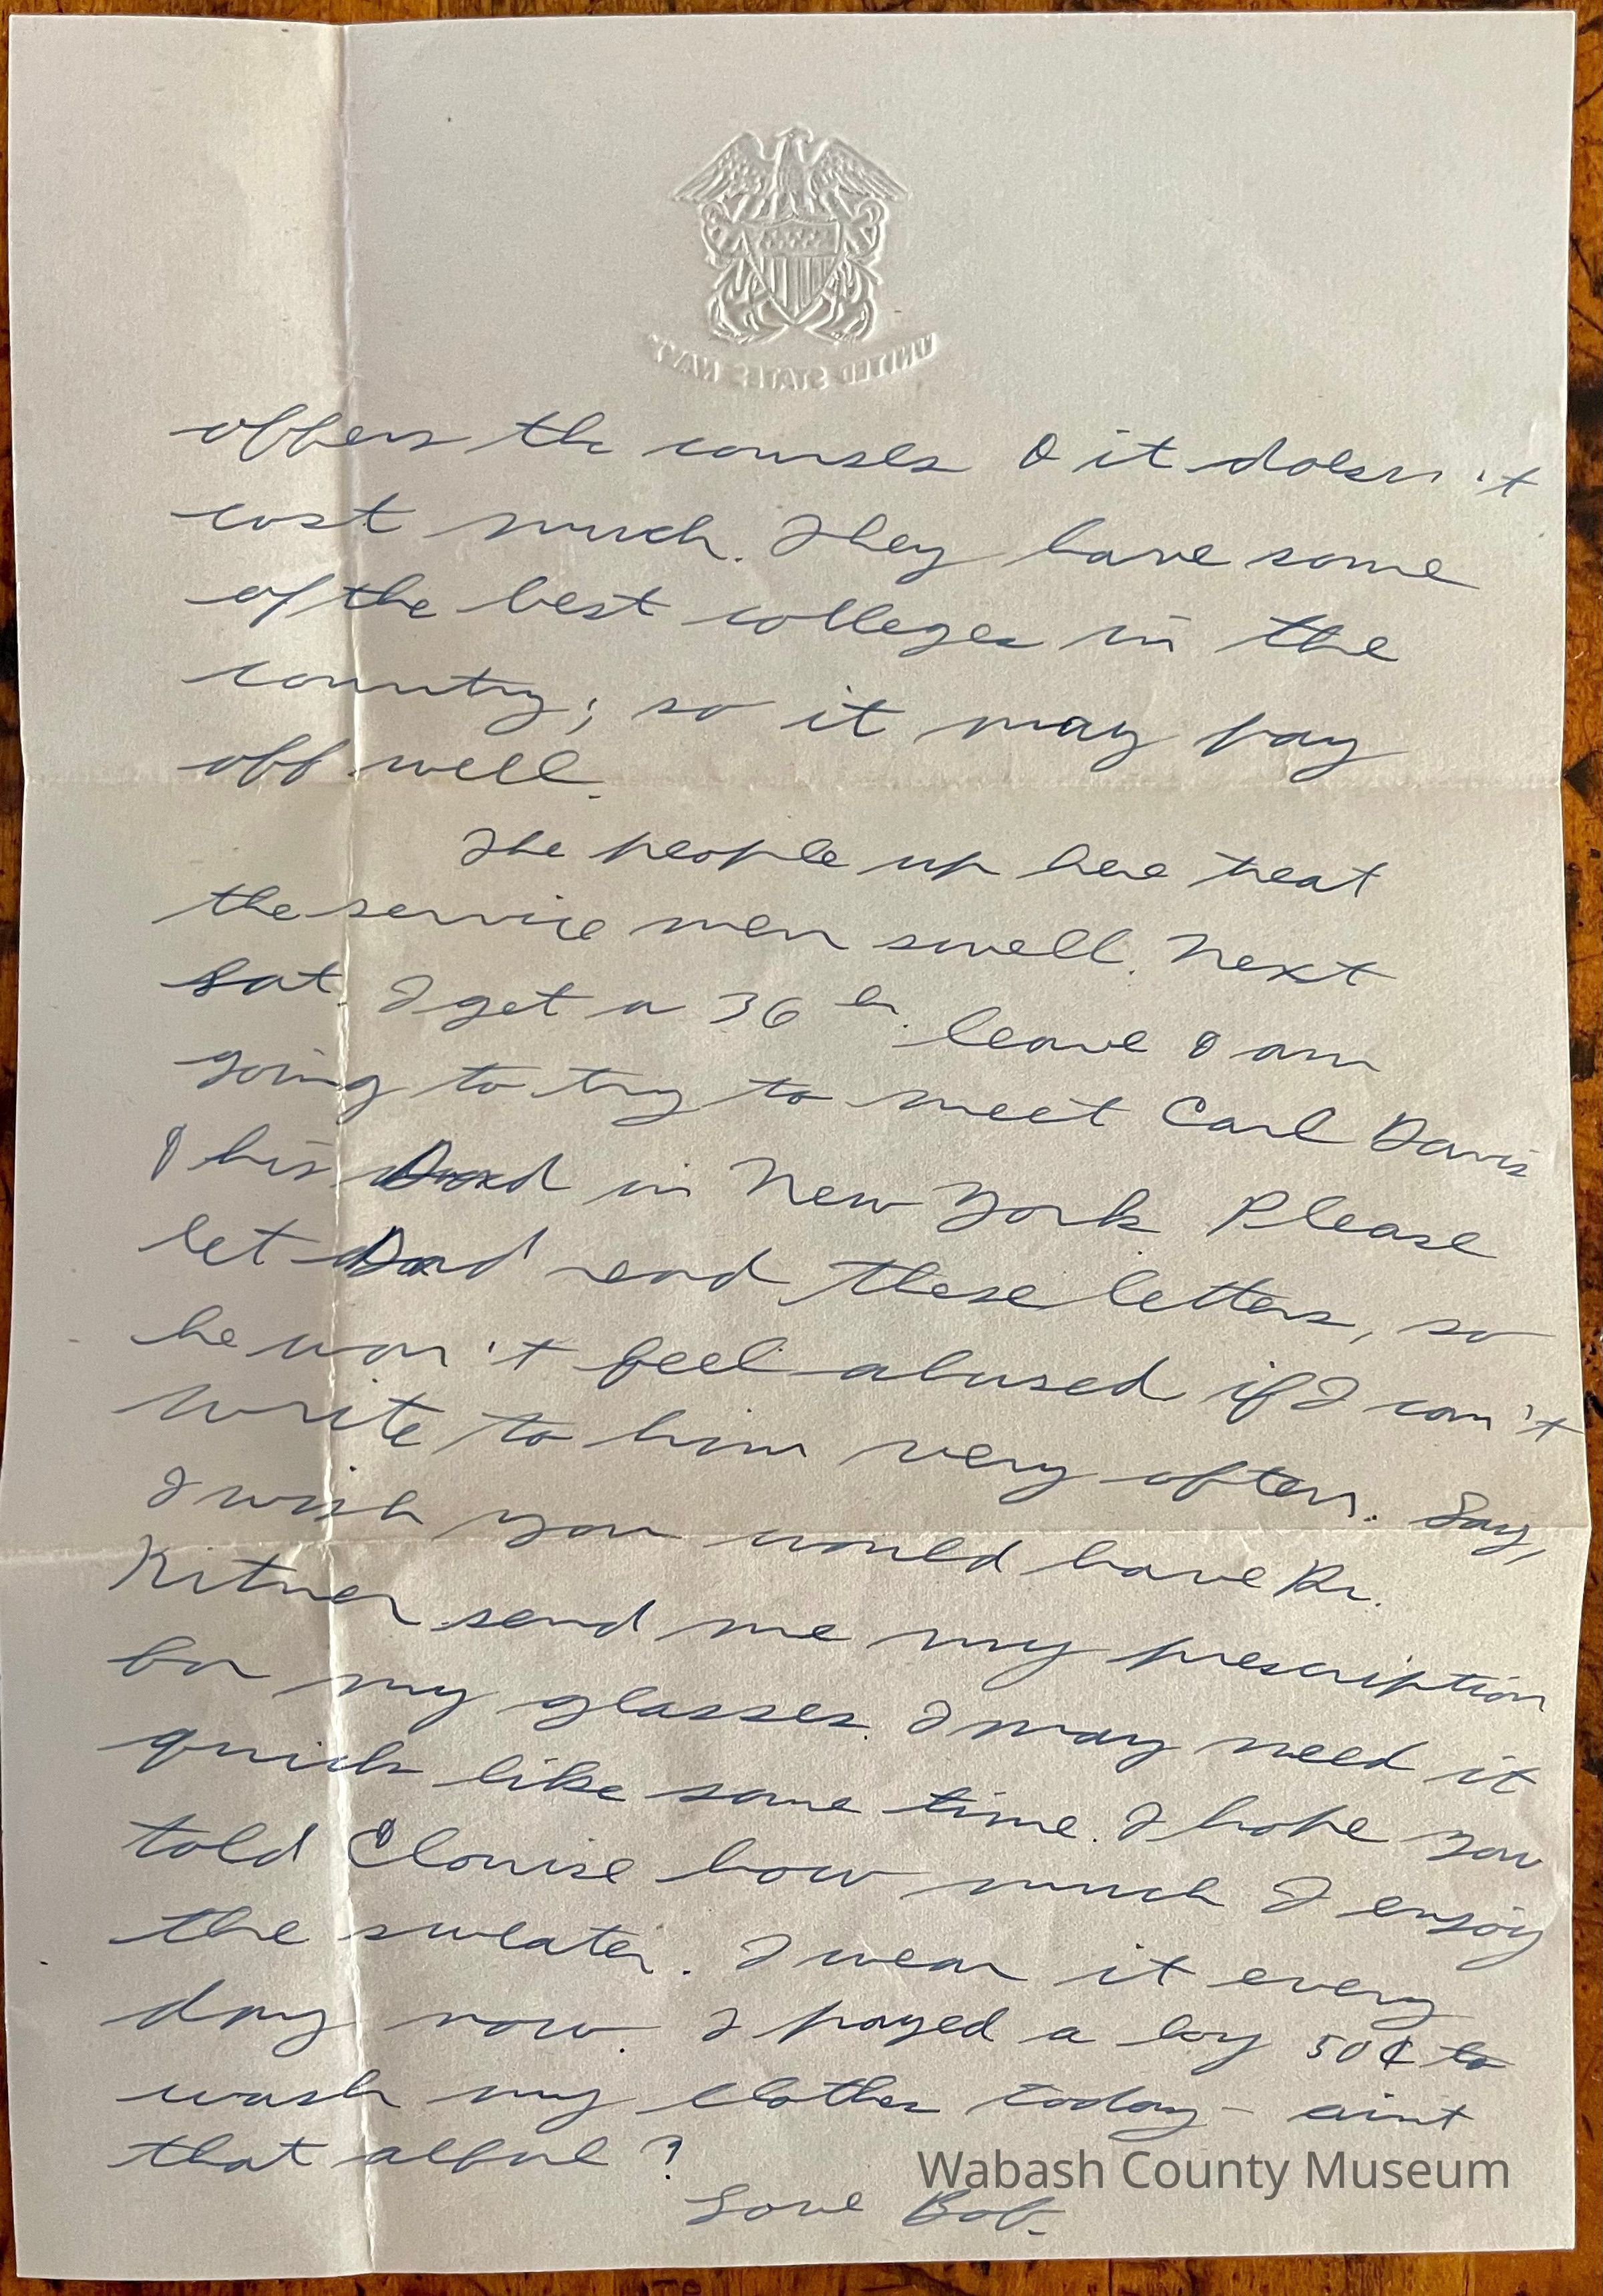 UNITED STATES NAVY
offers the courses & it doesn't
cost much. They have some
of the best colleges in the
country; so it may pay
off well.
The people up here treat
the service men swell. Next
Sat. I get a 36 hr. leave & am
going to try to meet Carl Davis
& his Dad in New York. Please
let Dad read these letters, so
he won't feel abused if I can't
write to him very often. Say,
I wish you would have Dr.
Kitner send me my prescription
for my glasses. I may need it
quick like some time. I hope you
told Clouise how much I enjoy
the sweater. I wear it every
day now. I payed a boy 50¢ to
wash my clothes today - aint
that alful?
Love Bob.
Wabash County Museum